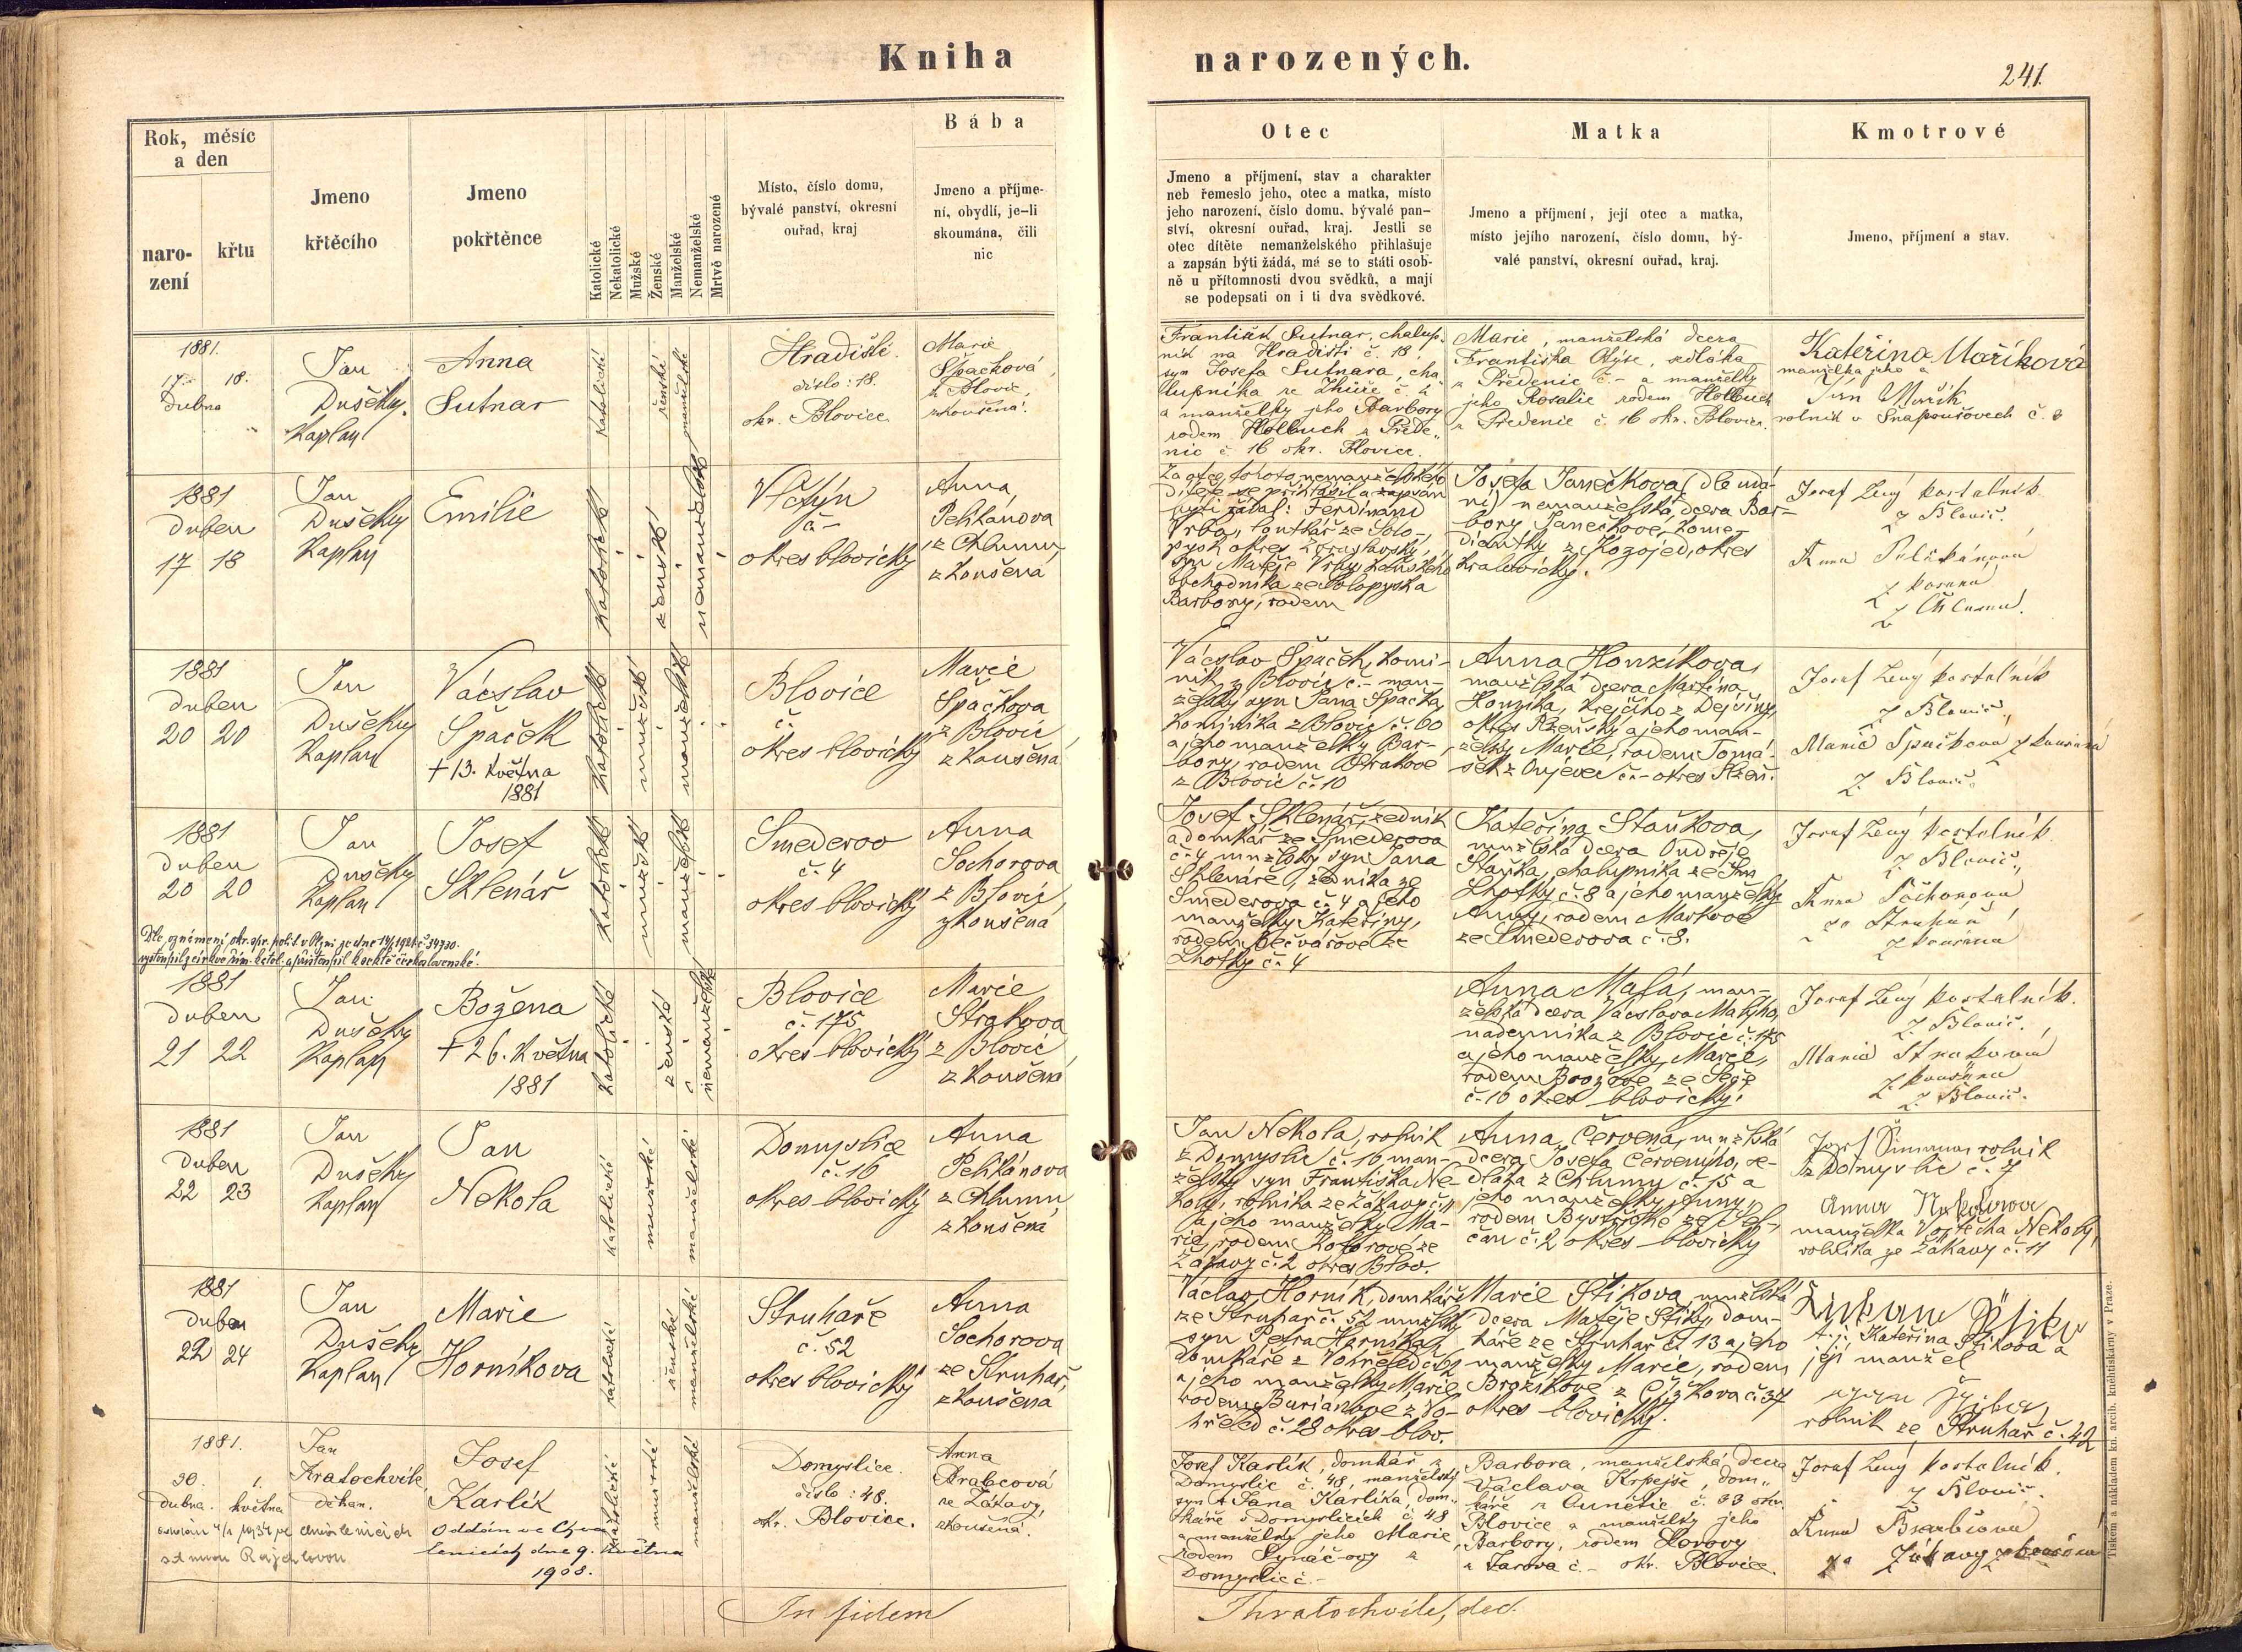 Kniha narozených.
241.
Rok, měsíc
a den
naro-
zení
křtu
Jmeno
křtěcího
Jmeno
pokřtěnce
Katolické
Nekatolické
Mužské
Ženské
Manželské
Nemanželské
Mrtvě narozené
Místo, číslo domu,
bývalé panství, okresní
ouřad, kraj
Bába
Jmeno a příjme-
ní, obydlí, je-li
skoumána, čili
nic
Otec
Jmeno a příjmení, stav a charakter
neb řemeslo jeho, otec a matka, místo
jeho narození, číslo domu, bývalé pan-
ství, okresní ouřad, kraj. Jestli se
otec dítěte nemanželského přihlašuje
a zapsán býti žádá, má se to státi osob-
ně u přítomnosti dvou svědků, a mají
se podepsati on i ti dva svědkové.
Matka
Jmeno a příjmení, její otec a matka,
místo jejího narození, číslo domu, bý-
valé panství, okresní ouřad, kraj.
Kmotrové
Jmeno, příjmení a stav.
1881.
17. 18.
Dubna
Jan
Dušek
Kaplan
Anna
Sutnar
Katolické
ženské
manželské
Hradiště.
číslo: 18.
okr. Blovice
Marie
Špačková,
z Blovic,
zkoušená.
František Sutnar, chalup-
ník na Hradišti č. 18,
syn Josefa Sutnara, cha
lupníka ze Zhůře č.
a manželky jeho Barbory
rodem Hollbuch z Přede-
nic č. 16 okr. Blovice.
Marie, manželská dcera
Františka sedláka
z Předenic č. - a manželky
jeho Rosalie rodem Hollbuch
z Předenic č. 16 okr. Blovice.
Kateřina Maříková
manželka jeho a
Jan Mařík
rolník v Snopoušovech č. 8
1881
Duben
17 18
Jan
Dušek
Kaplan
Emilie
Katolické
ženské
nemanželské
Vlčtýn
č-
okres blovický
Anna
Pelikánova
z Chlumu,
zkoušená
Za otce tohoto nemanželského
dítěte se přihlásil a zapsán
býti žádal: Ferdinand
Vrba, loutkář ze Solo-
pysk okres
syn Matěje Vrby,
obchodníka ze Solopysk a
Barbory, rodem
Josefa Janečkova (dle udá-
ní) nemanželská dcera Bar-
bory Janečkové, kome-
diantky z Kozojed, okres
kralovický.
Josef Lený kostelník
z Blovic.
Anna Pelikánová
z Chlumu.
1881
Duben
20 20
Jan
Dušek
Kaplan
Václav
Špaček
+ 13. Května
1881
Katolické
mužské
manželské
Blovice
č.
okres blovický
Marie
Špačkova
z Blovic
zkoušená
Václav Špaček, komi-
ník z Blovic č.- man-
želský syn Jana Špačka,
kominíka z Blovic č. 60
a jeho manželky Bar-
bory, rodem Strakove
z Blovic č. 10
Anna Honzíkova,
manželská dcera Martina
Honzíka, krejčího z Dejšiny,
okres Plzeňský a jeho man-
želky Marie, rodem Tomá-
šek z Oujezd č.- okres Plzeň.
Josef Lený kostelník
z Blovic,
Marie Špačkova zkoušená
z Blovic.
1881
Duben
20 20
Jan
Dušek
Kaplan
Josef
Sklenář
Katolické
mužské
manželské
Smederov
č. 4
okres blovický
Anna
Sochorova
z Blovic
zkoušená
Josef Sklenář, zedník
a domkář ze Smederova
č. 4 mnželský syn Jana
Sklenáře, zedníka ze
Smederova č. 4 a jeho
manželky Kateřiny,
rodem Bečvářové ze
Lhotky č. 4
Kateřina Staňkova,
mnželská dcera Ondřeje
Staňka, chalupníka ze
Lhotky č. 8 a jeho manželky
Anny, rodem Markove
ze Smederova č. 8.
Josef Lený kostelník
z Blovic,
Anna Sochorova
ze Struhař
zkoušena
1881
Duben
21 22
Jan
Dušek
Kaplan
Božena
+ 26. Května
1881
Katolické
ženské
nemanželské
Blovice
č. 175
okres blovický
Marie
Strakova
z Blovic
zkoušená
Anna Malá, man-
želská dcera Václava Malýho,
nádenníka z Blovic č. 175
a jeho manželky Marie,
rodem Brožove ze Seče
č. 10 okres blovický.
Josef Lený kostelník.
z Blovic.
Marie Strakova
zkoušena
z Blovic.
1881
Duben
22 23
Jan
Dušek
Kaplan
Jan
Nekola
Katolické
mužské
manželské
Domyslice
č. 16
okres blovický
Anna
Pelikánova
z Chlumu,
zkoušená
Jan Nekola, rolník
z Domyslic č. 16 man-
želský syn Františka Ne-
koly, rolníka ze Žákavy č. 11
a jeho manželky Ma-
rie, rodem Kotorove ze
Žákavy č. 2 okres Blov.
Anna Červená, mnželská
dcera Josefa Červenýho, se-
dláka z Chlumu č. 15 a
jeho manželky Anny,
rodem Bystřické ze Sel-
čan č. 2 okres blovický
Josef Šimman rolník
z Domyslic č. 7
Anna Nekolova
manželka Vojtěcha Nekoly,
rolníka ze Žákavy č. 11
1881
Duben
22 24
Jan
Dušek
Kaplan
Marie
Horníkova
katolické
ženské
manželské
Struhaře
č. 52
okres blovický
Anna
Sochorova
ze Struhař,
zkoušená
Václav Horník, domkář
ze Struhař č. 52 mnželský
syn Petra Horníka,
domkáře z Vohřeled č. 62
a jeho manželky Marie
rodem Buriánove z Vo-
hřeled č. 28 okres blov.
Marie Štikova, mnželská
dcera Matěje Štiky, dom-
káře ze Struhař č. 13 a jeho
manželky Marie, rodem
Brožíkove z Čížkova č. 37
okres blovický.
t.j. Kateřina Štikova a
její manžel
rolník ze Struhař č. 42
1881.
30. 1.
dubna. května
Jan
Kratochvíle,
děkan.
Josef
Karlík
Oddán ve Chvá
lenicích dne 9. května
1908.
katolické
mužské
manželské
Domyslice.
číslo: 48.
okr. Blovice.
Anna
Brabcová
ze Žákavy,
zkoušená.
Josef Karlík, domkář z
Domyslic č. 48, manželský
syn + Jana Karlíka, dom-
káře v Domyslicích č. 48
a manželky jeho Marie,
rodem Synáč-ovy z
Domyslic č. -
Barbora, manželská dcera
Václava Krpejše, dom-
káře z Lunětic č. 33 okr.
Blovice a manželky jeho
Barbory, rodem Horovy
z Žárova č. - okr. Blovice.
Josef Lený kostelník.
z Blovic.
Anna Brabcova
ze Žákavy zkoušena
In fidem
Kratochvíle, děd.
Tiskem a nákladem kn. arcib. knihtiskárny v Praze.